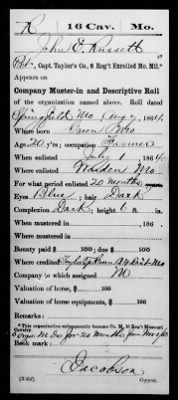 R | 16 Cav. | Mo.
John E. Russett
Pvt., Capt. Taylor's Co., 6 Reg't Enrolled Mo. Mil.*
Appears on
Company Muster-in and Descriptive Roll
of the organization named above. Roll dated
Springfield Mo Aug 9, 1864.
Where born Green Co Mo
Age 20 y'rs; occupation Farmer
When enlisted July 1, 1864.
Where enlisted Walden Mo
For what period enlisted 20 months
Eyes Blue; hair Dark
Complexion Dark; height ft. in.
When mustered in , 186 .
Where mustered in
Bounty paid $ 100; due $ 100
Where credited
Company to which assigned M
Valuation of horse, $ 100
Valuation of horse equipments, $ 100
Remarks:
*This organization subsequently became Co. M, 16 Reg't Missouri
Cavalry
organ M. I. for 20 months from Nov 1/63
Book mark:
Jacobson
Copyist.